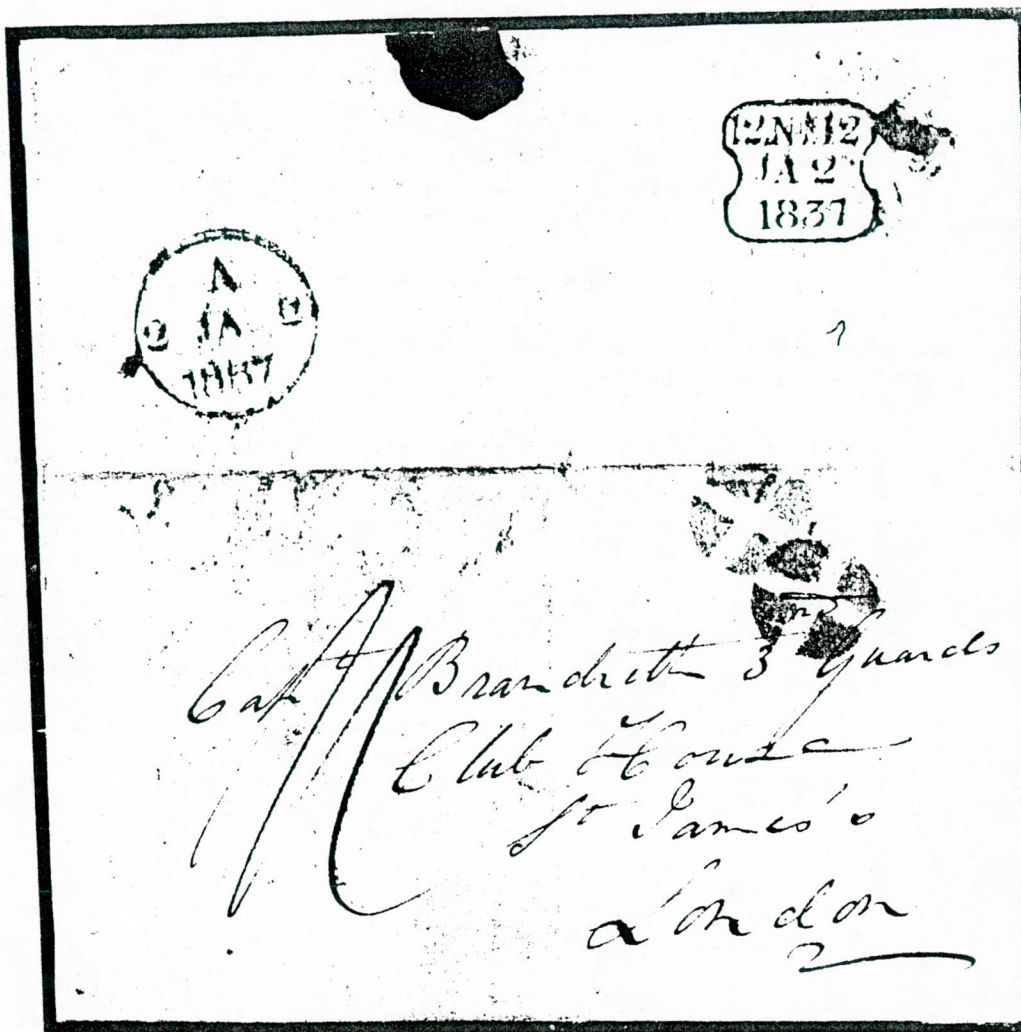 12NN12
JA 2
1837
A
2 JA 2
1837
Capt Brandreth 3rd Guards
Club House
St James's
London